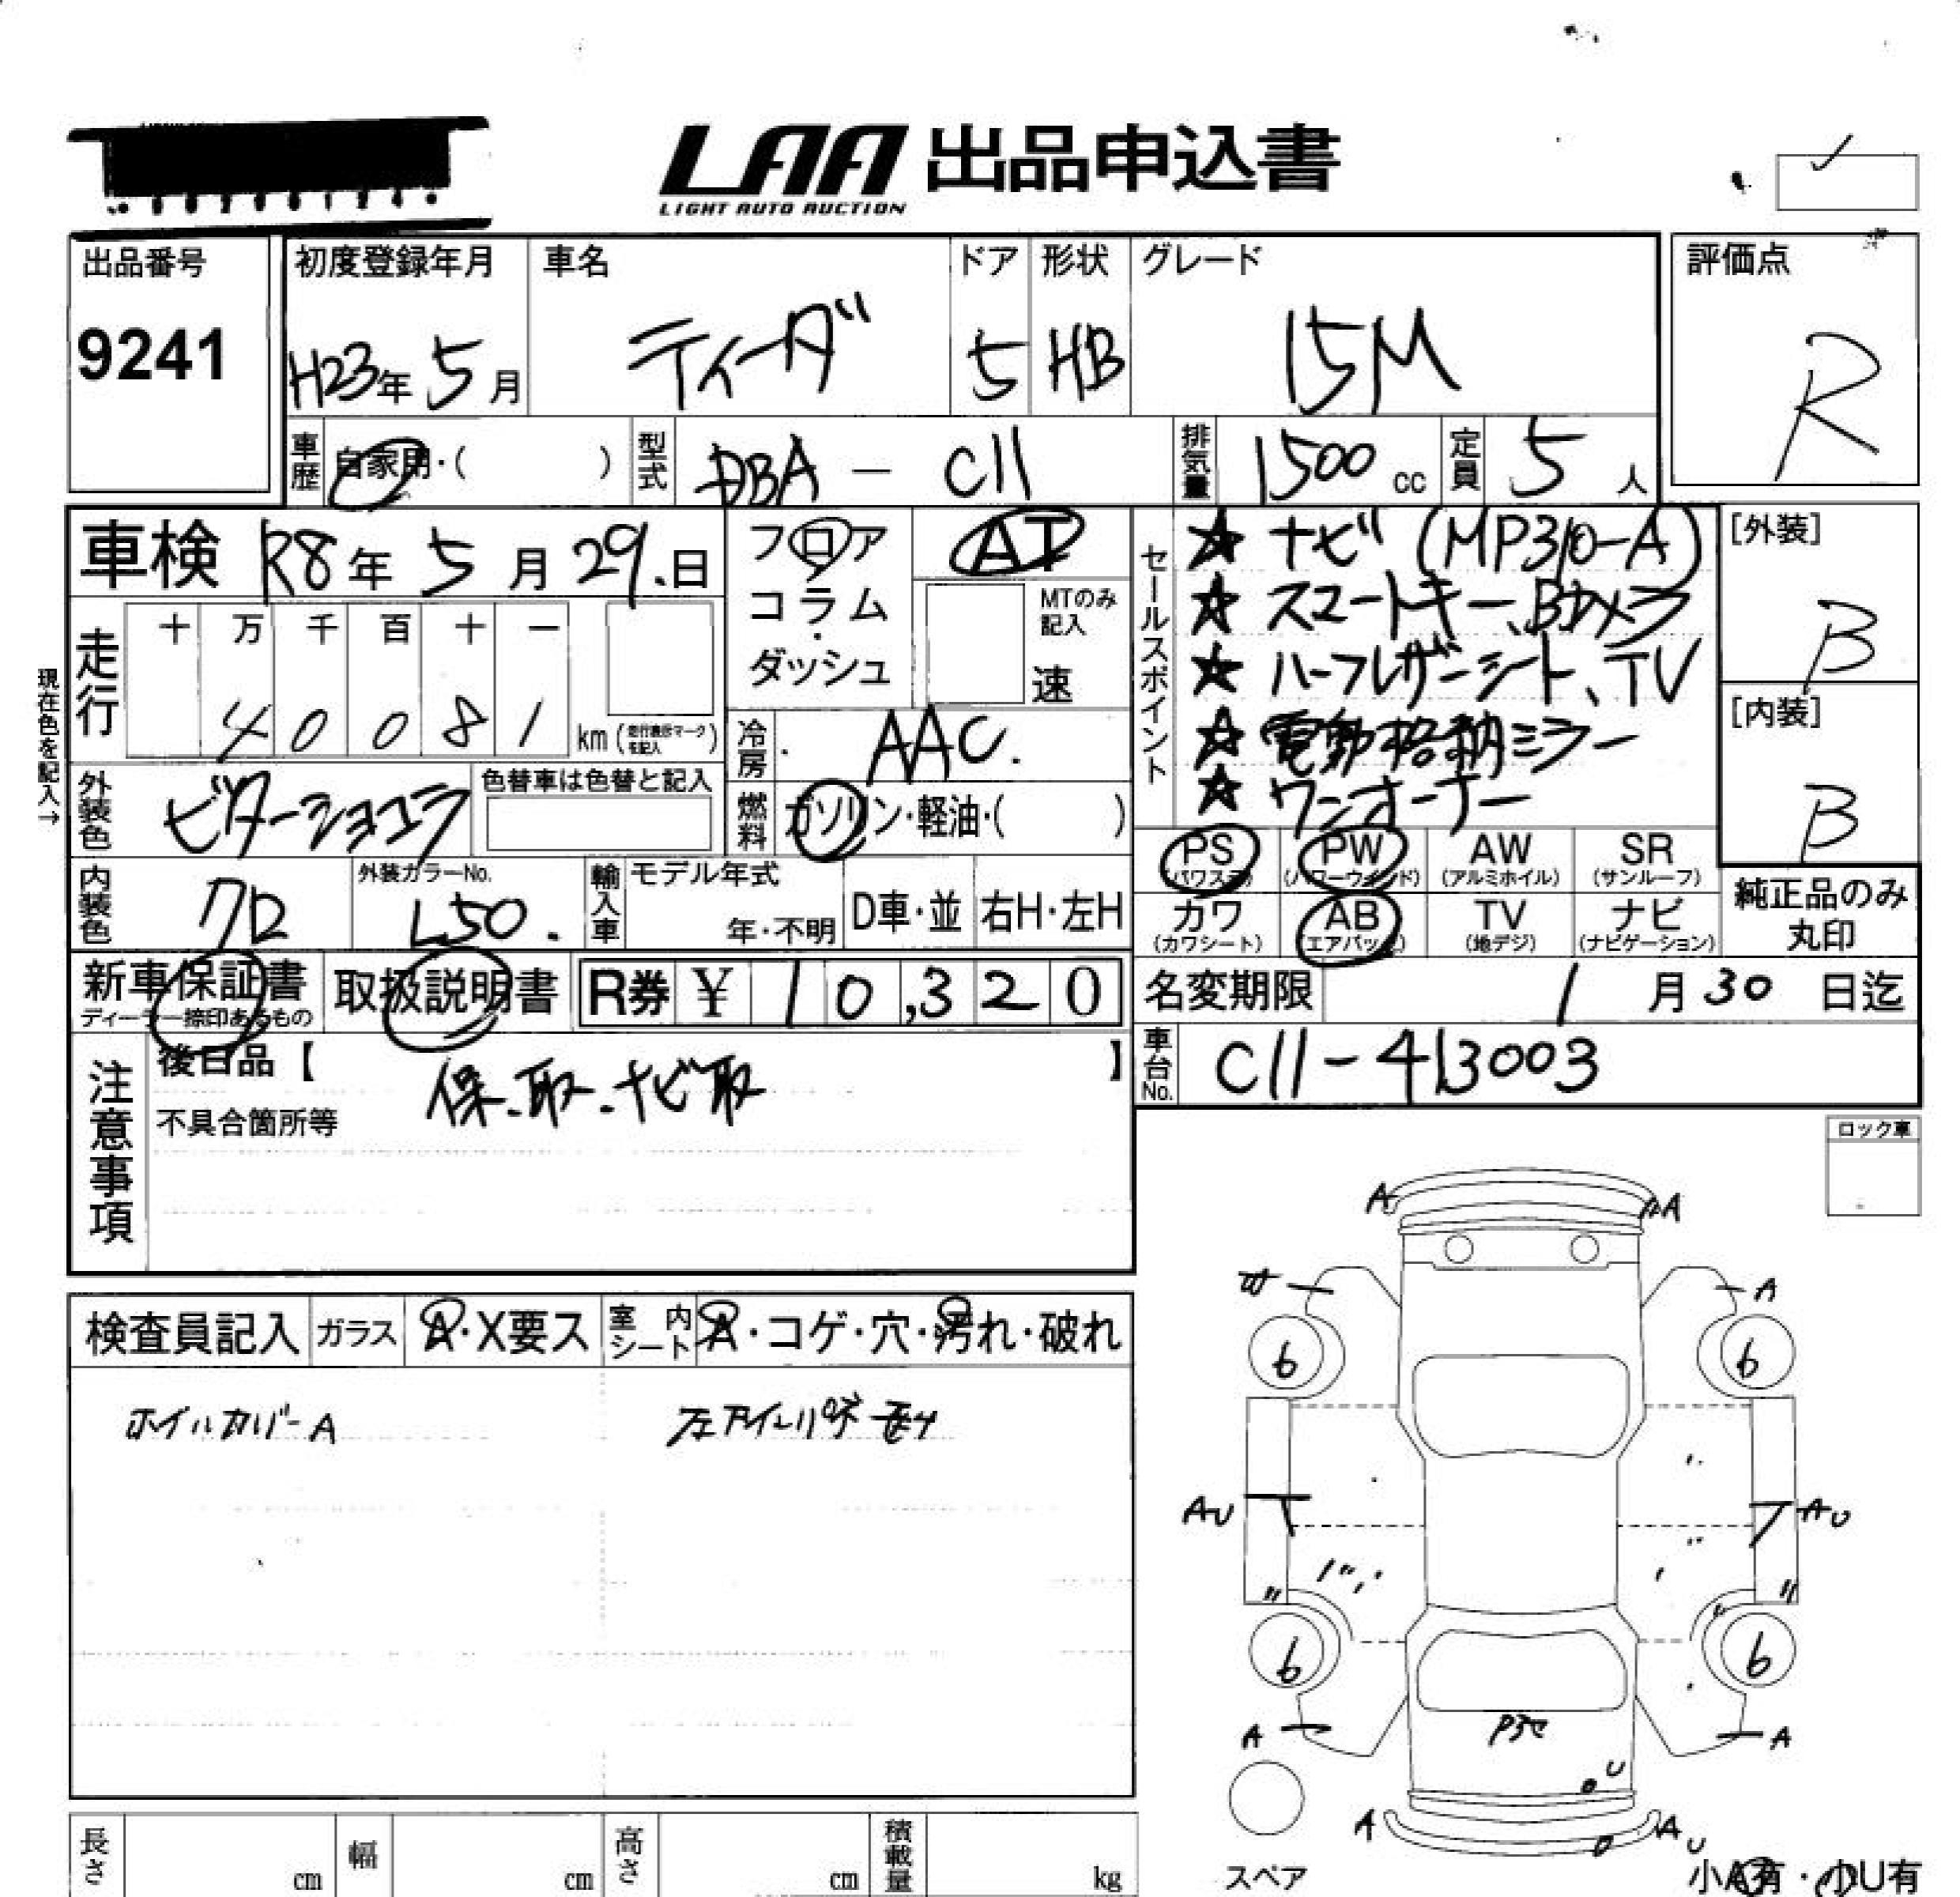 LAA 出品申込書
LIGHT AUTO AUCTION
出品番号
9241
初度登録年月
H23年 5月
車名
ティーダ
ドア
5
形状
HB
グレード
15M
評価点
R
車歴 自家用・( )
型式 DBA - C11
排気量 1500 cc
定員 5 人
車検 R8年 5月 29日
フロア・コラム・ダッシュ
AT
MTのみ記入
速
現在色を記入→
走行
十 万 千 百 十 一
4 0 0 8 1 km(走行表示マークを記入)
冷房 AAC.
外装色 ビターショコラ
色替車は色替と記入
燃料 ガソリン・軽油・( )
内装色 クロ
外装カラーNo.
L50.
輸入車 モデル年式
年・不明
D車・並 右H・左H
セールスポイント
☆ ナビ (MP310-A)
☆ スマートキー、Bカメラ
☆ ハーフレザーシート、TV
☆ 電動格納ミラー
☆ ワンオーナー
[外装]
B
[内装]
B
PS (パワステ) PW (パワーウインド) AW (アルミホイル) SR (サンルーフ)
カワ (カワシート) AB (エアバック) TV (地デジ) ナビ (ナビゲーション)
純正品のみ丸印
新車保証書
ディーラー捺印あるもの
取扱説明書
R券 ¥ 10,320
名変期限 1月 30日迄
車台No. C11-413003
注意事項
後日品【 】
保.取.ナビ取
不具合箇所等
ロック車
検査員記入
ガラス A・X要ス
室内シート A・コゲ・穴・汚れ・破れ
ホイルカバーA
A A
A
6 6
AU AU
6 6
A A
U
A A U
スペア
小A有・小U有
長さ cm
幅 cm
高さ cm
積載量 kg